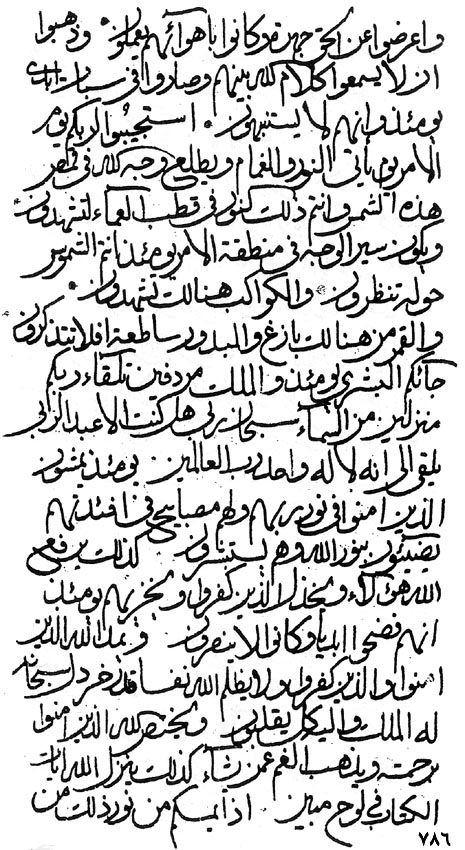 واعرضوا عن الحق جهرة وكانوا باهوائهم يعملون وذهبوا
ان لا يسمعوا كلام الله بينهم وصاروا في
يومئذ وانهم لا يستنبهون استجيبوا لربكم يوم
الامر يوم ياتي النور والغمام ويطلع وجه الله في قمص
هذه الشمس وانتم ذلك كنور في قطب العماء لتشهدون
ويكون سير الوجه في منطقة الامر يومئذ انتم الشموس
حوله تنظرون والكواكب هنالك تشهدون
والقمر من هنالك بازغ والبدور ساطعة افلا تتذكرون
جائكم البشرى يومئذ والملك مردفين تلقاء ربكم
منزلين من السماء سبحان ربي هل كنت الا عبد الربي
يلقى الي انه لا له واحد رب العالمين يومئذ يمشون
الذين امنوا في نور ربهم ولهم مصابيح في افئدتهم
يضيئون بنور الله وهم يستنيرون كذلك يرفع
الله هؤلاء ويخذل الذين كفروا ويخزيهم يومئذ
انهم نضحوا وكانوا لا ينصرون الله الذين
امنوا والذين كفروا ولا يظلم الله نفسا قدر خردل سبحانه
له الملك واليه كل يقلبون ويختص الله الذين امنوا
برحمته ويذهب الغم عمن شاء كذلك ينزل الله ايات
الكتاب في لوح مبين اذا يمسكم من نور ذلك من
٧٨٦